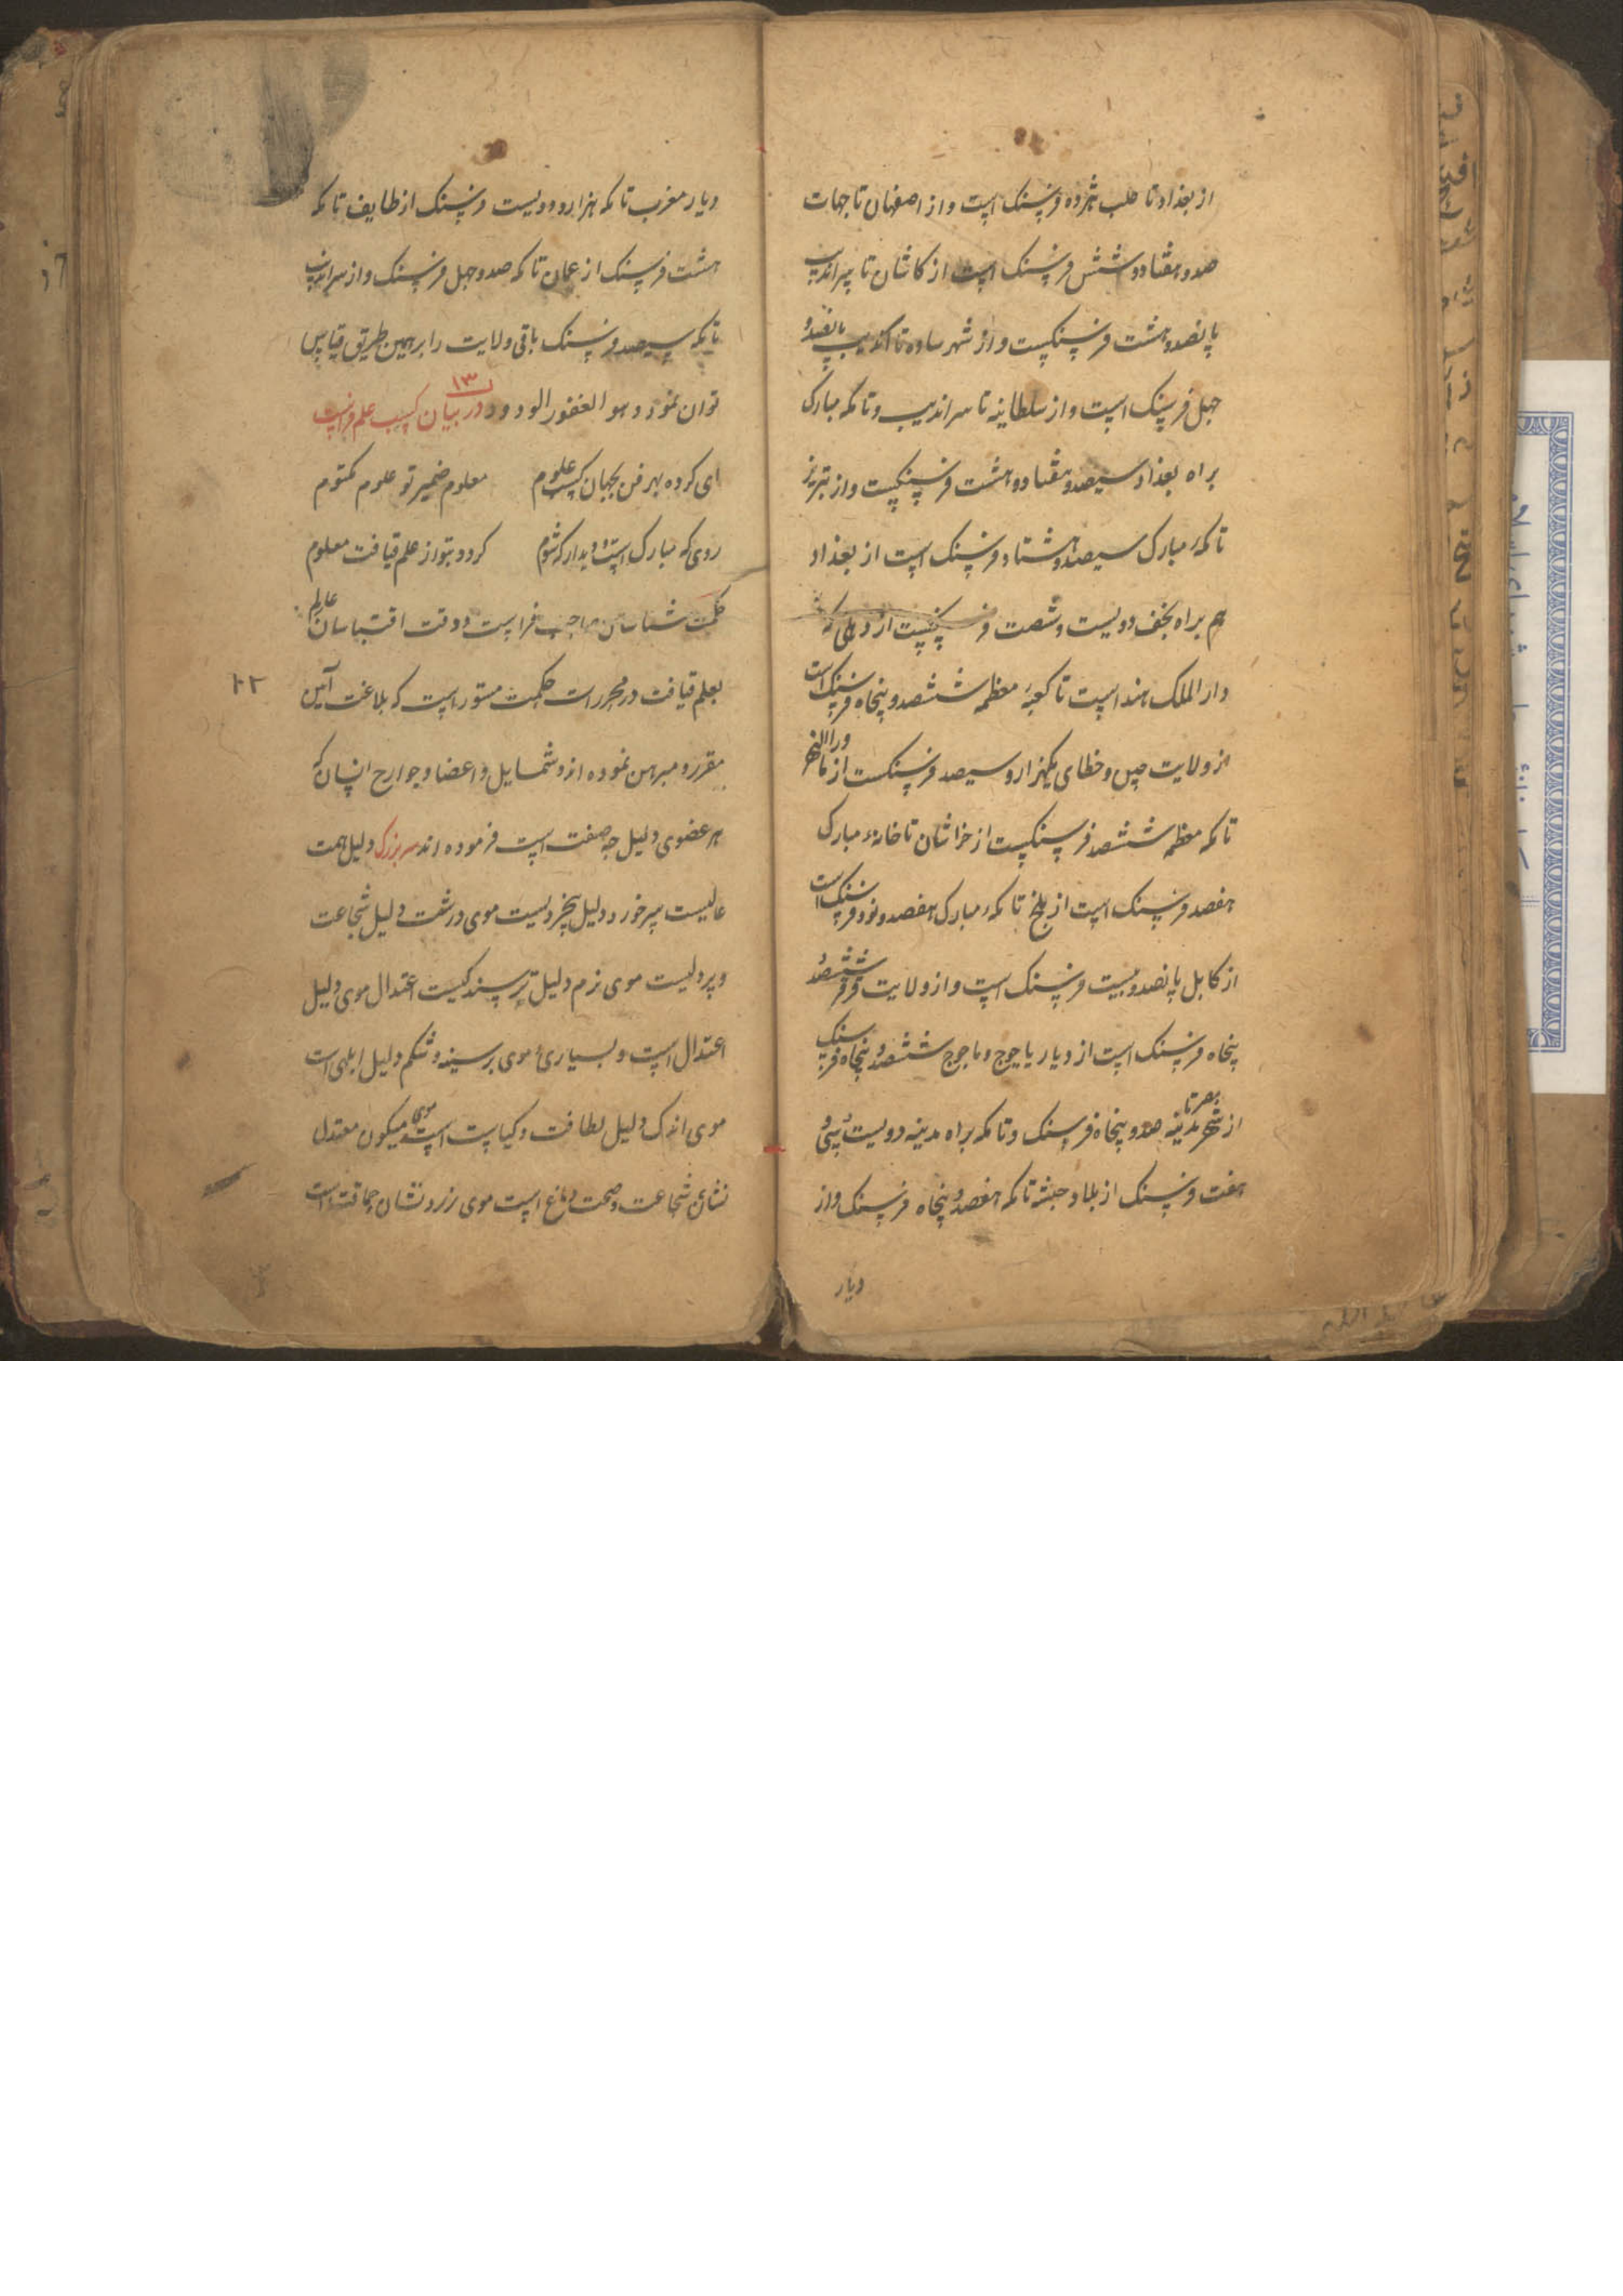 از بغداد تا حلب هژده فرسنک است و از اصفهان تا جهات
صد و هفتاد و شش فرسنک است از کاشان تا سراندیب
پانصد و هشت فرسنکیست و از شهر ساوه تا پانصد و
چهل فرسنک است و از سلطانیه تا سراندیب و تا مکه مبارک
براه بغداد سیصد و هفتاد و هشت فرسنکیست و از تبریز
تا مکهٔ مبارک سیصد و هشتاد فرسنک است از بغداد
هم براه نجف دویست و شصت فرسنکیست از دهلی که
دار الملک هند است تا کعبهٔ معظمه ششصد و پنجاه فرسنک است
از ولایت چین و خطای یکهزار و سیصد فرسنکست از ماورالنهر
تا مکه معظمه ششصد فرسنکیست از خراسان تا خانهٔ مبارک
هفصد فرسنک است از بلخ تا مکهٔ مبارک هفصد و نود فرسنک است
از کابل پانصد و بیست فرسنک است و از ولایت ششصد و
پنجاه فرسنک است از دیار یاجوج و ماجوج ششصد و پنجاه فرسنک
از شهر مصر تا مدینه صد و پنجاه فرسنک و تا مکه براه مدینه دویست و سی و
هفت فرسنک از بلاد حبشه تا مکه هفصد و پنجاه فرسنک و از
دیار
دیار مغرب تا مکه هزار و دویست فرسنک از طایف تا مکه
هشت فرسنک از عمان تا مکه صد و چهل فرسنک و از سراندیب
تا مکه سیصد فرسنک باقی ولایت را بر همین طریق قیاس
توان نمود و هو الغفور الودود ۱۳ در بیان کسب علم فراست
ای کرده بهر فن بجهان کسب علوم معلوم ضمیر تو علوم مکتوم
روی که مبارک است و دیدار که شوم کردد بتو از علم قیافت معلوم
حکمت شناسان صاحب فراست و دقت اقتباسان عالم
بعلم قیافت در مجررات حکمت مستور است که بلاغت آئین
مقرر و مبرهن نموده اند و شمایل و اعضا و جوارح انسان که
هر عضوی دلیل چه صفت است فرموده اند سر بزرک دلیل همت
عالیست سر خورد دلیل بیخردیست موی درشت دلیل شجاعت
و پردلیست موی نرم دلیل ترسندکیست اعتدال موی دلیل
اعتدال است و بسیاریٔ موی بر سینه و شکم دلیل ابلهی است
موی اندک دلیل لطافت و کیاست است موی میکون معتدل
نشان شجاعت و صحت دماغ است موی زرد نشان حماقت است